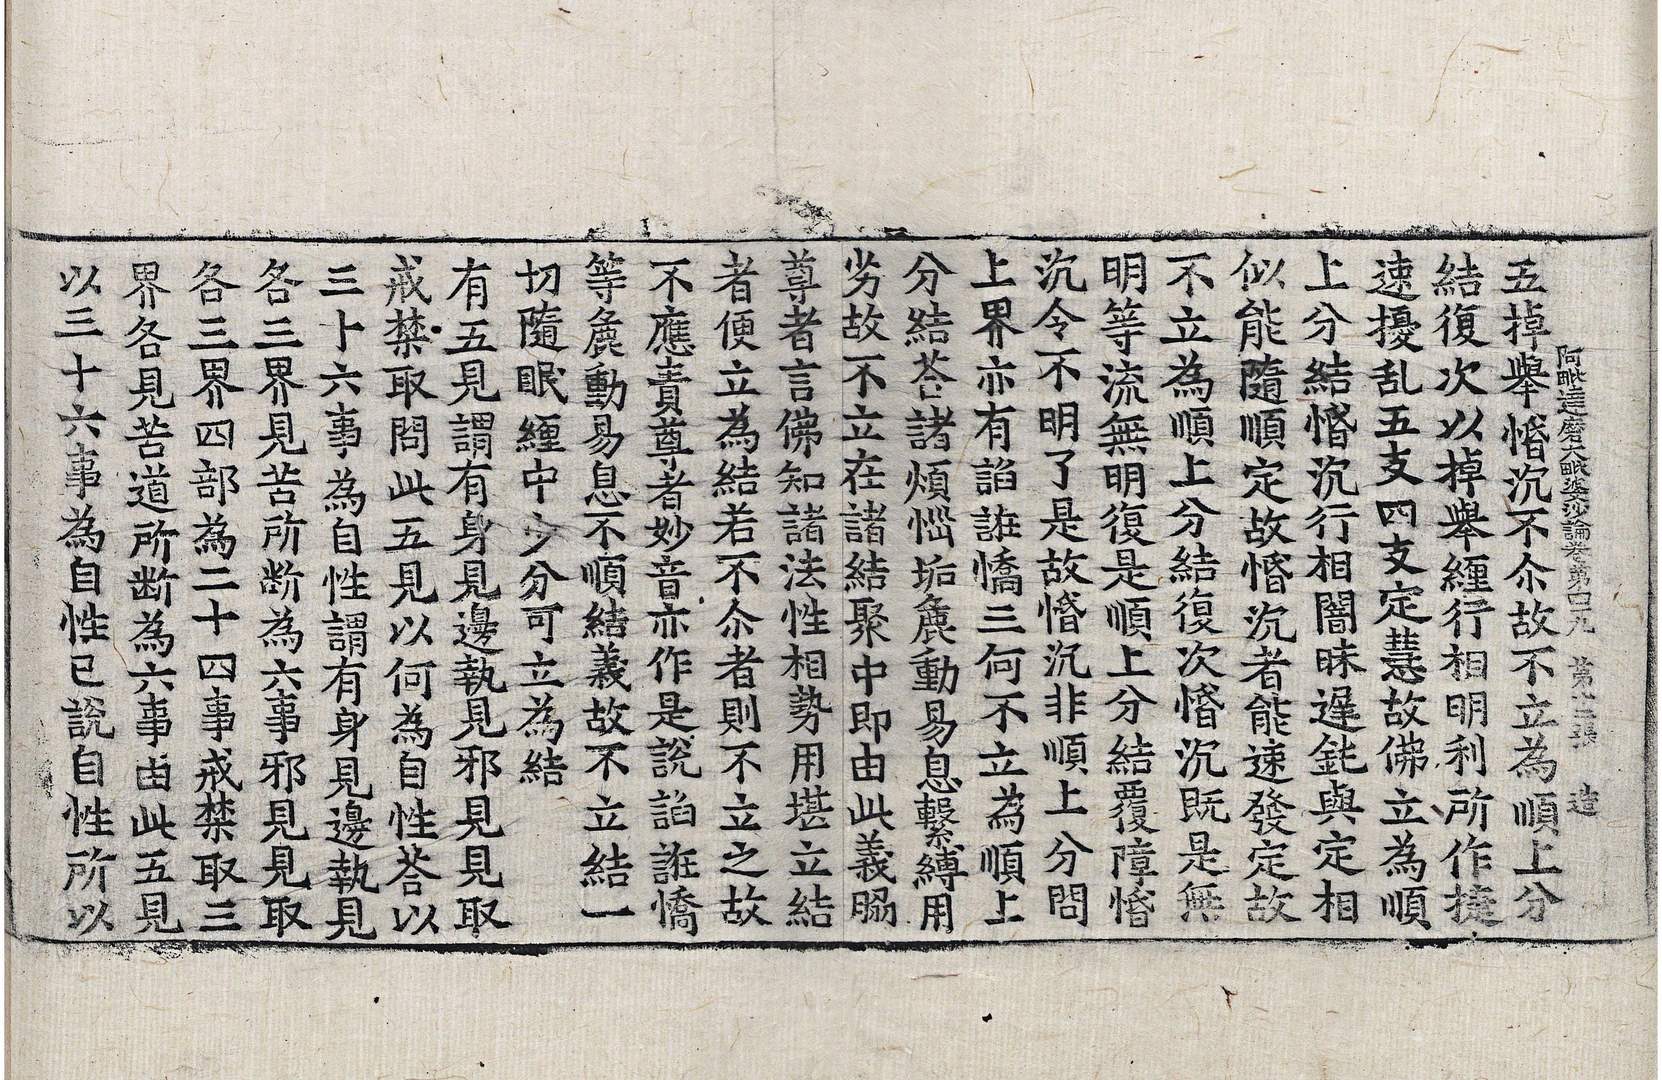 阿毗達磨大毗婆沙論卷第四九　第十二張　造
五掉舉惛沉不尒故不立為順上分
結復次以掉舉纏行相明利所作捷
速擾乱五支四支定慧故佛立為順
上分結惛沉行相闇昧遲鈍與定相
似能隨順定故惛沉者能速發定故
不立為順上分結復次惛沉既是無
明等流無明復是順上分結覆障惛
沉令不明了是故惛沉非順上分問
上界亦有諂誑憍三何不立為順上
分結荅諸煩惱垢麁動易息繫縛用
劣故不立在諸結聚中即由此義脇
尊者言佛知諸法性相勢用堪立結
者便立為結若不尒者則不立之故
不應責尊者妙音亦作是說諂誑憍
等麁動易息不順結義故不立結一
切隨眠纏中少分可立為結
有五見謂有身見邊執見邪見見取
戒禁取問此五見以何為自性荅以
三十六事為自性謂有身見邊執見
各三界見苦所断為六事邪見見取
各三界四部為二十四事戒禁取三
界各見苦道所断為六事由此五見
以三十六事為自性已說自性所以